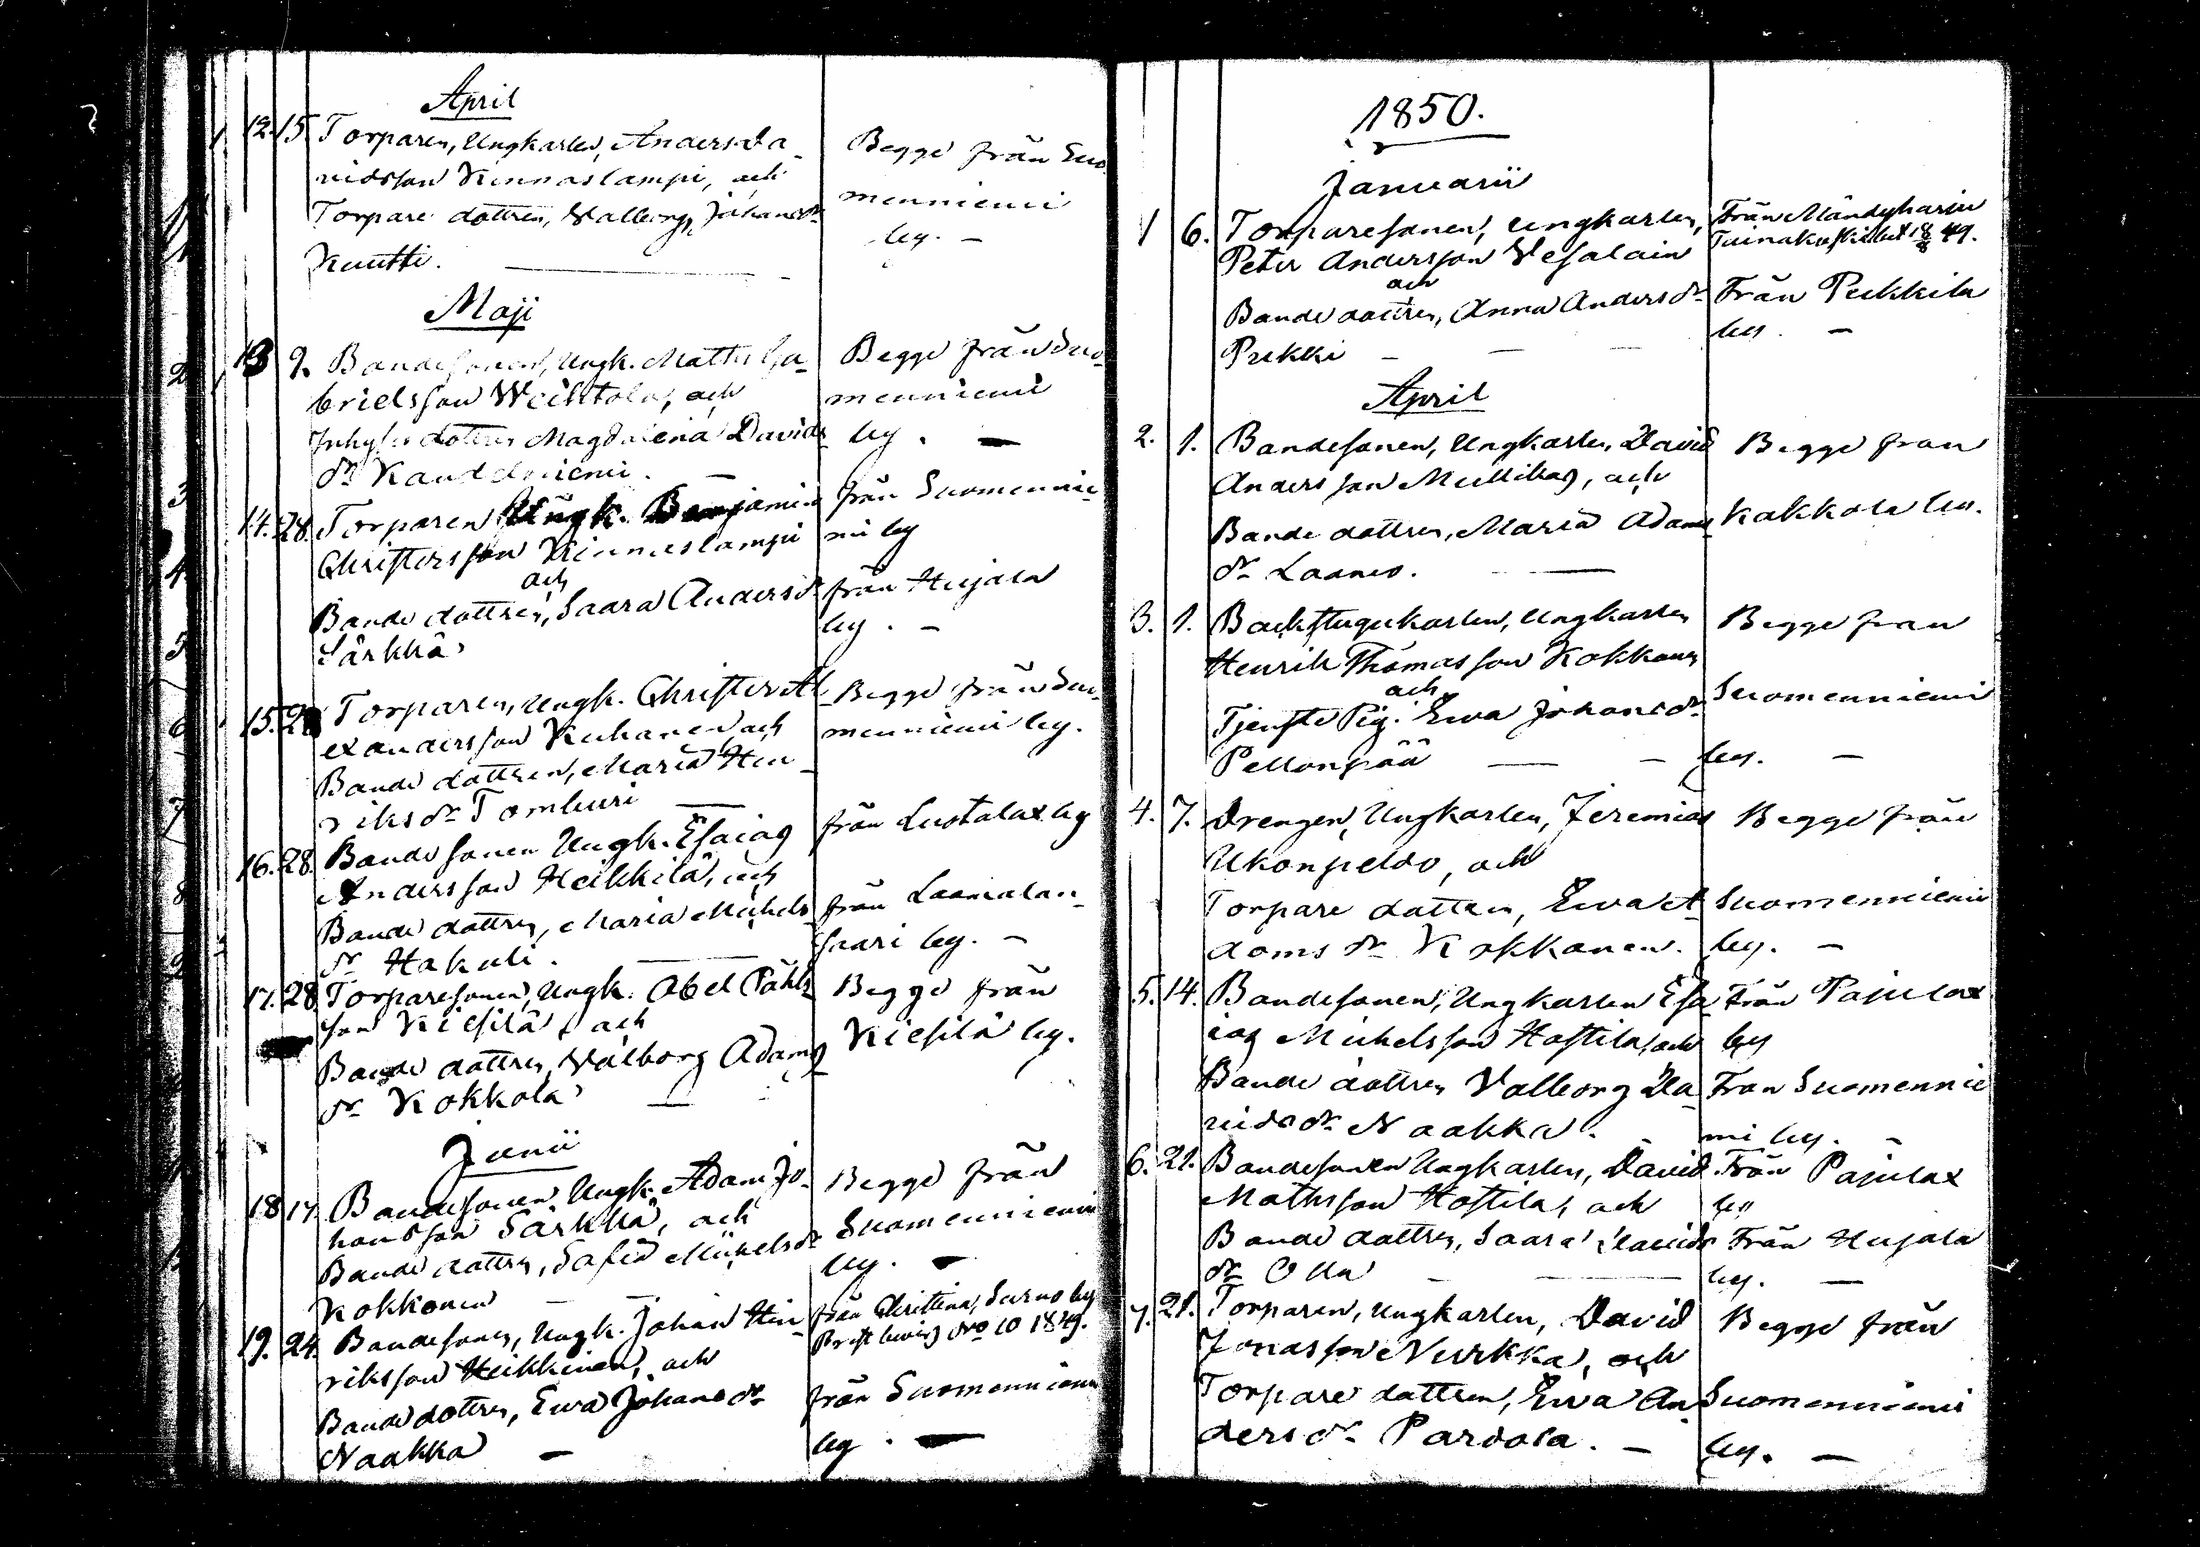 April
12. 15. Torparen, Ungkarlen, Anders Da-
vidsson Kinnaslampi, och
Torpare dottren, Walborg Johansdr
Kuutti.
Begge från Suo-
menniemi
by. —
Maji
13 9. Bondesonen, Ungk. Matts Ga-
brielsson Weihtola, och
dottren Magdalena Davids
dr Kandelniemi. —
Begge från Suo-
menniemi
by. —
14. 28. Torparen Ungk. Benjamin
Christersson Kinnaslampi
och
Bonde dottren, Saara Andersdr
Särkkä
från Suomennie-
mi by
från Hujala
by. —
15. 28 Torparen, Ungk. Christer Al-
exandersson Kuhanen och
Bonde dottren, Maria Hen-
riksdr Tomhuri —
Begge från Suo-
menniemi by.
16. 28. Bonde sonen Ungk. Esaias
Andersson Heikkilä, och
Bonde dottren, Maria Michels
dr Hakuli. —
från Luotalax by
från Laamalan-
saari by. —
17. 28. Torparesonen, Ungk. Abel Påhls-
son Kiesilä, och
Bonde dottren, Walborg Adams
dr Kokkola —
Begge från
Kiesilä by.
Junii
18 17. Bondesonen Ungk. Adam Jo-
hansson Särkkä, och
Bonde dottren, Sofia Michelsdr
Kokkonen —
Begge från
Suomenniemi
by. —
19. 24. Bondesonen, Ungk. Johan Hen-
riksson Heikkinen, och
Bonde dottren, Ewa Johansdr
Naakka —
från Christina, Surno by
Prest bewis No 10 1849.
från Suomenniemi
by. —
1850.
Januarii
1 6. Torparesonen, Ungkarlen,
Peter Andersson Wesalain
och
Bonde dottren, Anna Andersdr
Pekki —
Från Mändyharju
Från Pekkila
by. —
April
2. 1. Bondesonen, Ungkarlen, David
Andersson Mullikas, och
Bonde dottren, Maria Adams
dr Laamo. —
Begge fran
Kokkola by.
3. 1. Backstugukarlen, Ungkarlen
Henrik Thomasson Kokkonen
och
Tjenste Pig. Ewa Johansdr
Pellonpää —
Begge fran
Suomenniemi
by. —
4. 7. Drengen, Ungkarlen, Jeremias
Ukonpeldo, och
Torpare dottren, Ewa A-
damsdr Kokkonen.
Begge från
Suomenniemi
by. —
5. 14. Bondesonen, Ungkarlen Esa
ias Michelsson Hostila, och
Bonde dottren Valborg Da-
vidsdr Naakka.
Från Pajulax
by
Fran Suomennie
mi by. —
6. 21. Bondesonen Ungkarlen, David
Mathsson Hostila, och
Bonde dottren, Saara Davids
dr Olla —
Från Pajulax
by
Från Hujala
by. —
7. 21. Torparen, Ungkarlen, David
Jonasson Nurkka, och
Torpare dottren, Ewa An-
dersdr Pardola. —
Begge från
Suomenniemi
by. —